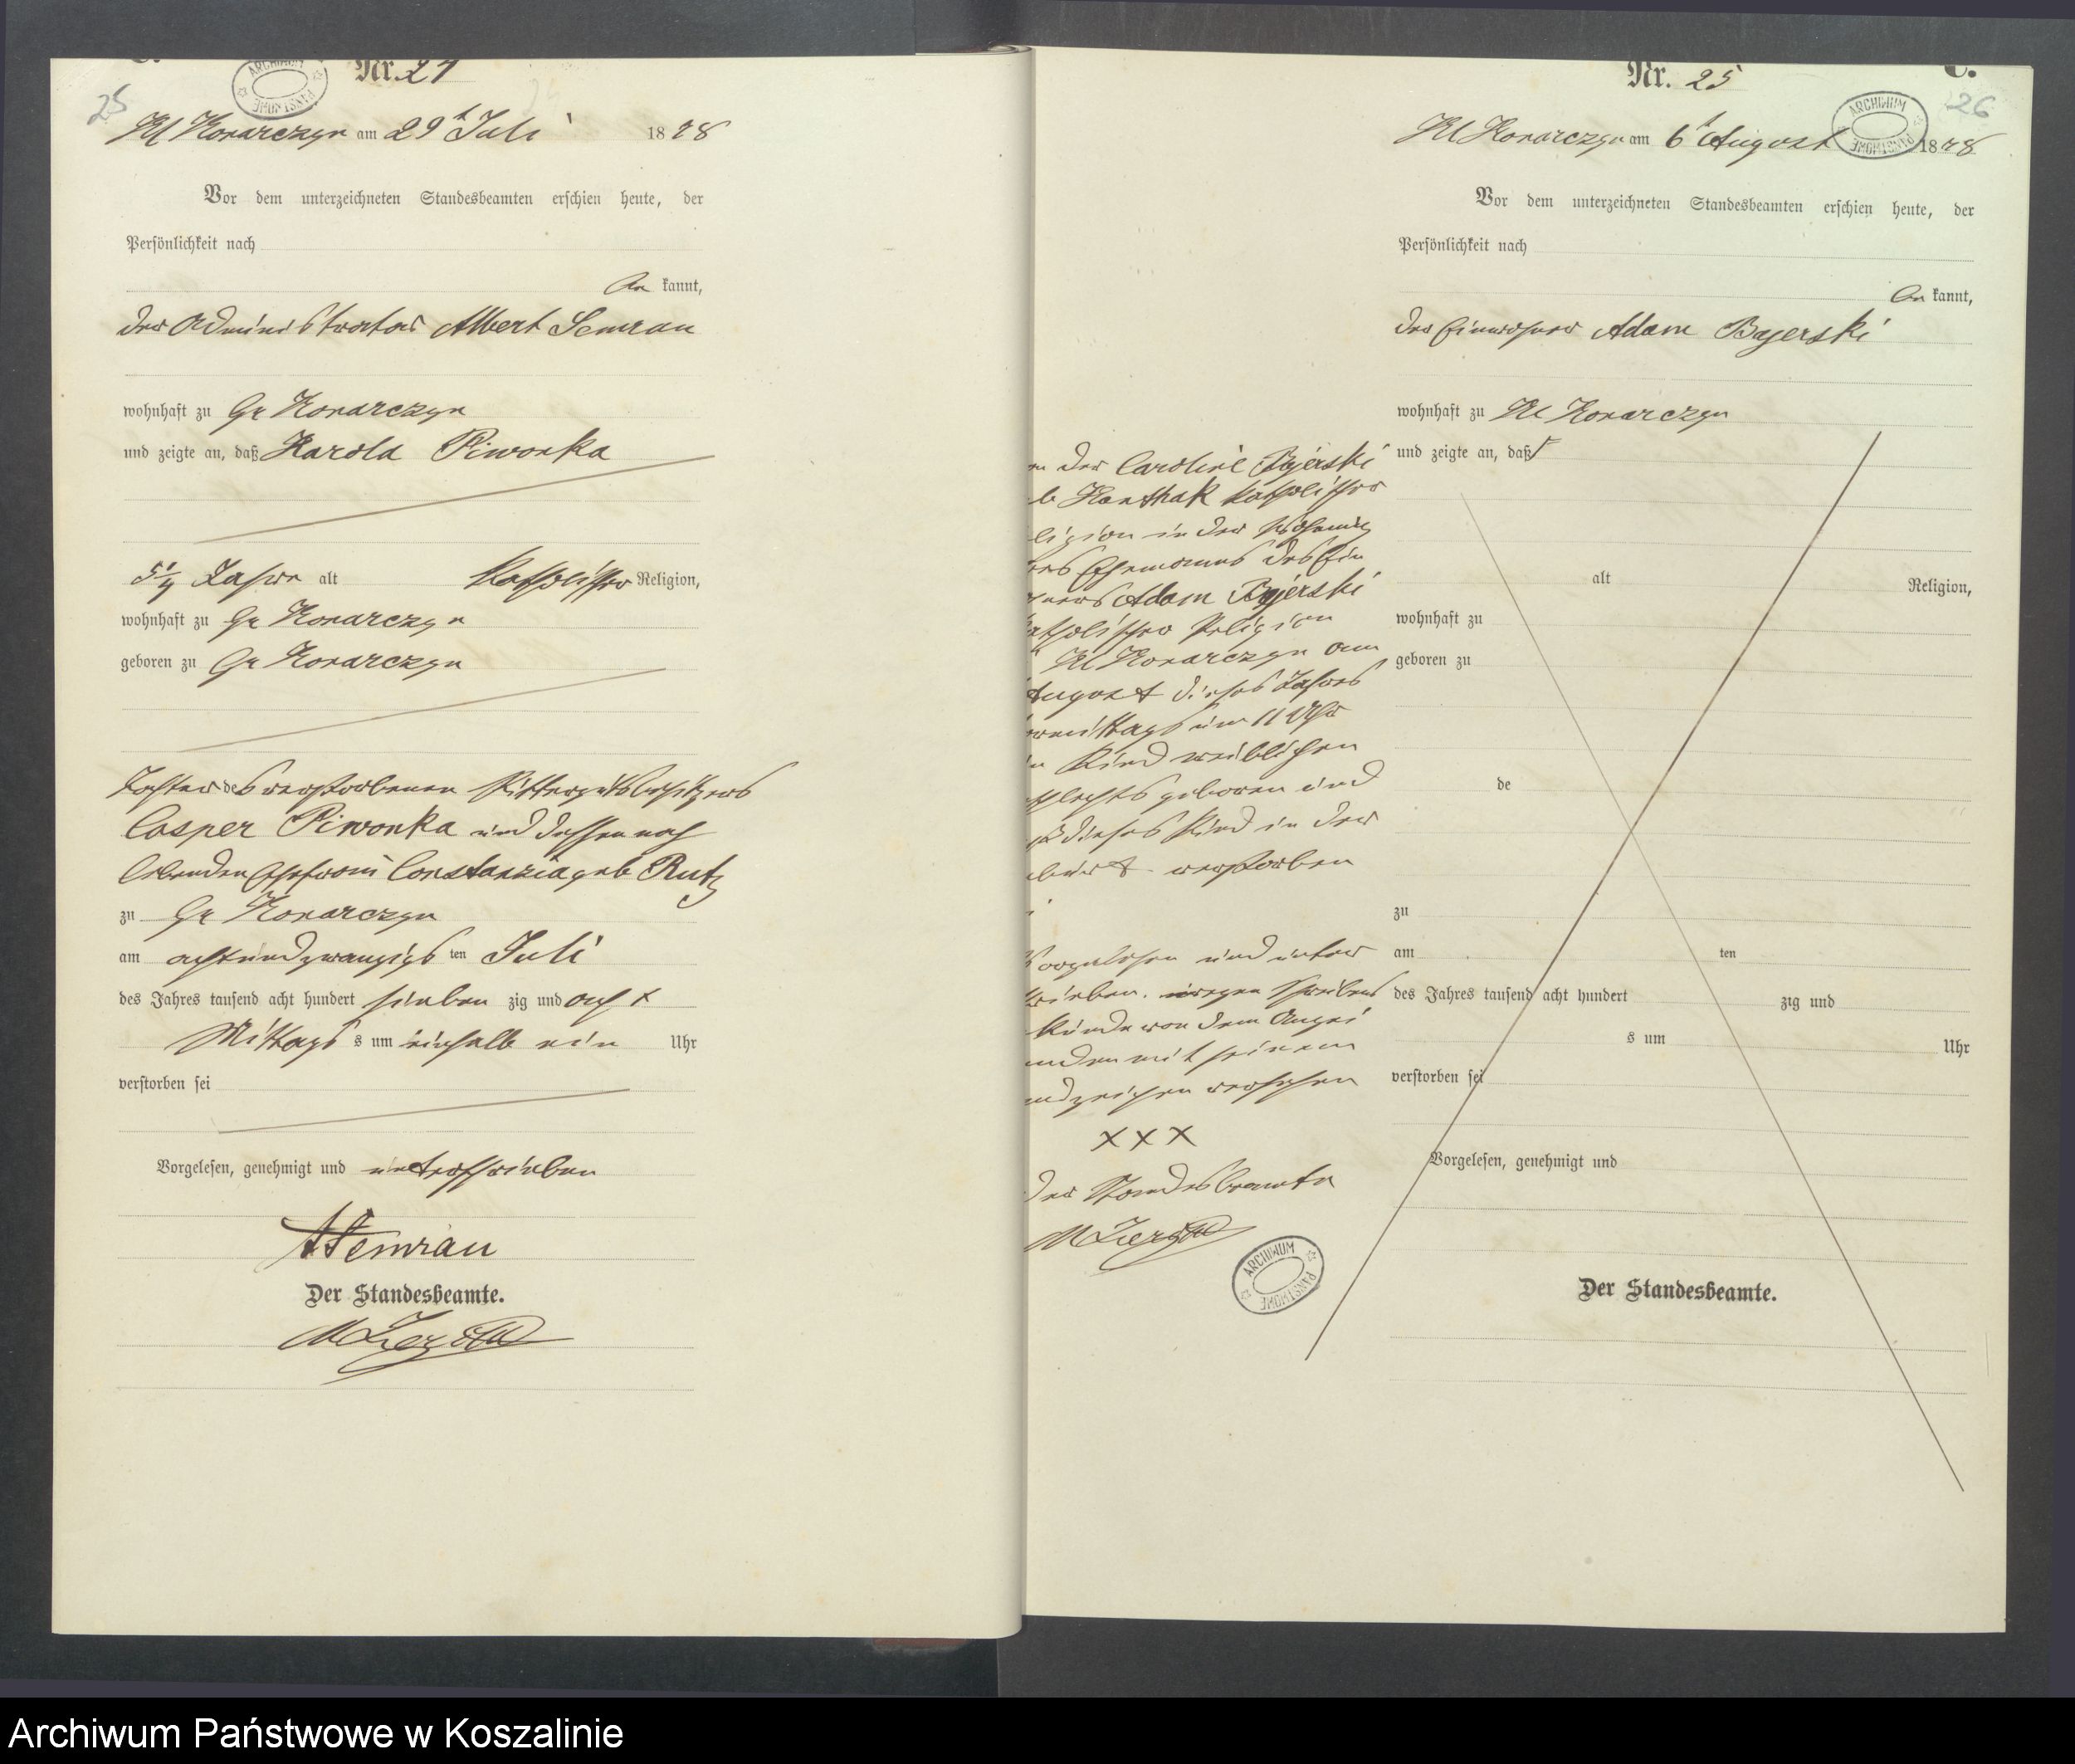 Nr. 24
25
ARCHIWUM PAŃSTWOWE
Kl Konarczyn am 29t Juli 1878
Vor dem unterzeichneten Standesbeamten erschien heute, der
Persönlichkeit nach
be kannt,
der Administrator Albert Semrau
wohnhaft zu Gr Konarczyn
und zeigte an, daß Harold Piwonka
5 1/4 Jahre alt katholischer Religion,
wohnhaft zu Gr Konarczyn
geboren zu Gr Konarczyn
Tochter des verstorbenen Rittergutsbesitzers
Casper Piwonka und dessen noch
lebenden Ehefrau Constanzia geb Rutz
zu Gr Konarczyn
am achtundzwanzigs ten Juli
des Jahres tausend acht hundert sieben zig und acht
Mittags s um einhalb ein Uhr
verstorben sei
Vorgelesen, genehmigt und unterschrieben
A Semrau
Der Standesbeamte.
Nr. 25
C.
26
ARCHIWUM PAŃSTWOWE
Kl Konarczyn am 6t August 1878
Vor dem unterzeichneten Standesbeamten erschien heute, der
Persönlichkeit nach
be kannt,
der Einwohner Adam Bajerski
wohnhaft zu Kl Konarczyn
und zeigte an, daß
alt Religion,
wohnhaft zu
geboren zu
de
zu
am ten
des Jahres tausend acht hundert zig und
s um Uhr
verstorben sei
Vorgelesen, genehmigt und
Der Standesbeamte.
von der Caroline Bajerski
geb Kanthak katholischer
ligion in der Wohnung
ihres Ehemannes des Ein
wohners Adam Bajerski
katholischer Religion
Kl Konarczyn am
August dieses Jahres
vormittags um 11 Uhr
ein Kind weiblichen
schlechts geboren und
daß dieses Kind in der
burt verstorben
Vorgelesen und unter
schrieben. wegen Schreibens
kunde von dem Anzei
enden mit seinem
andzeichen versehen
XXX
Der Standesbeamte
ARCHIWUM PAŃSTWOWE
Archiwum Państwowe w Koszalinie